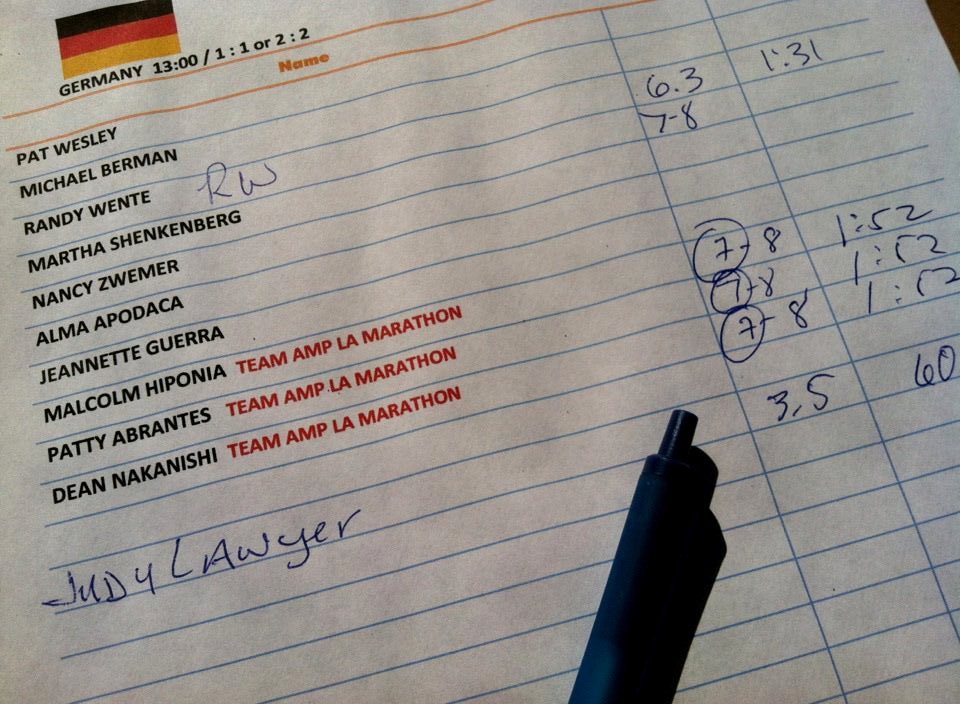 GERMANY 13:00 / 1 : 1 or 2 : 2
Name
PAT WESLEY
MICHAEL BERMAN
RANDY WENTE RW 6.3 1:31
MARTHA SHENKENBERG 7-8
NANCY ZWEMER
ALMA APODACA
JEANNETTE GUERRA
MALCOLM HIPONIA TEAM AMP LA MARATHON 7-8 1:52
PATTY ABRANTES TEAM AMP LA MARATHON 7-8 1:52
DEAN NAKANISHI TEAM AMP LA MARATHON 7-8 1:52
JUDY LAwyer 3.5 60